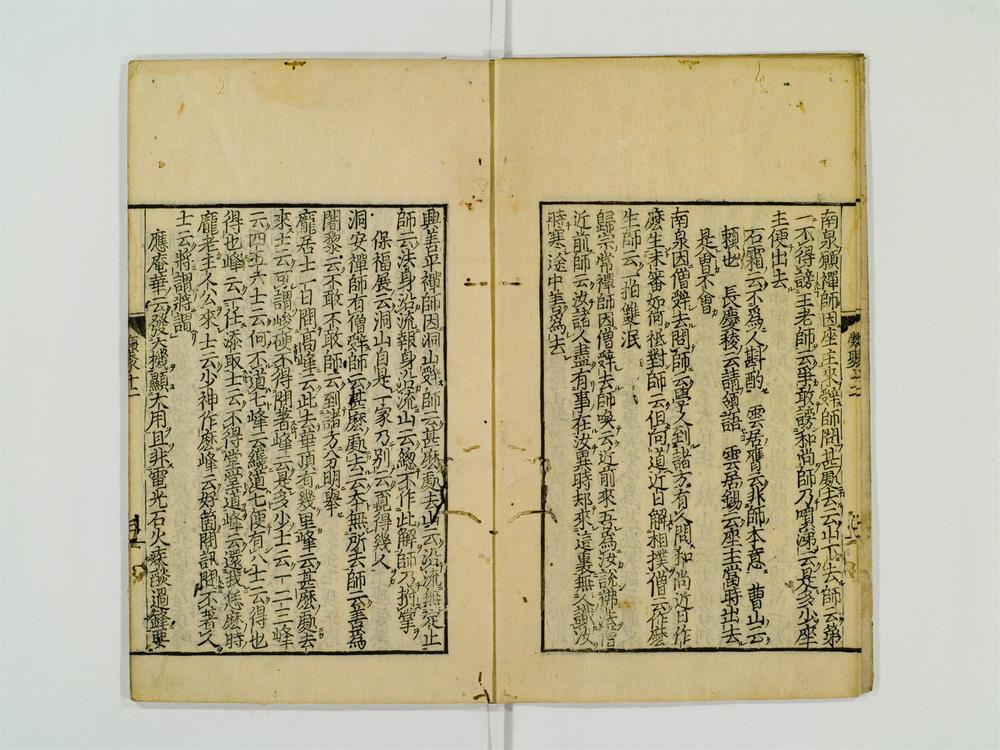 南泉願禪師因座主來辭師問甚處去云山下去師云第
一不得謗王老師云爭敢謗和尚師乃噴涕云是多少座
主便出去
石霜云不為人斟酌 雲居膺云非師本意 曹山云
賴也 長慶稜云請領語 雲居錫云座主當時出去
是會不會
南泉因僧辭去問師云學人到諸方有人問和尚近日作
麽生未審如何祗對師云但向道近日解相撲僧云作麽
生師云一拍雙泯
歸宗常禪師因僧辭去師喚云近前來吾為汝說佛法僧
近前師云汝諸人盡有事在汝異時却來這裏無人識汝
時寒途中善為去
興善平禪師因洞山辭師云甚麽處去山云沿流無定止
師云法身沿流報身沿流山云總不作此解師乃拊掌
保福展云洞山自是一家乃別云覓得幾人
洞安禪師有僧辭師云甚麽處去云本無所去師云善為
闍黎云不敢不敢師云到諸方分明舉
龐居士一日問高峰云此去華頂有幾里峰云甚麽處去
來士云可謂峻硬不得問著峰云是多少士云一二三峰
云四五六士云何不道七峰云纔道七便有八士云得也
得也峰云一任添取士云不得堂堂道峰云還我恁麽時
龐老主人公來士云少神作麽峰云好箇問訊問不著人
士云將謂將謂
應庵華云發大機顯大用且非電光石火疾燄過鋒要